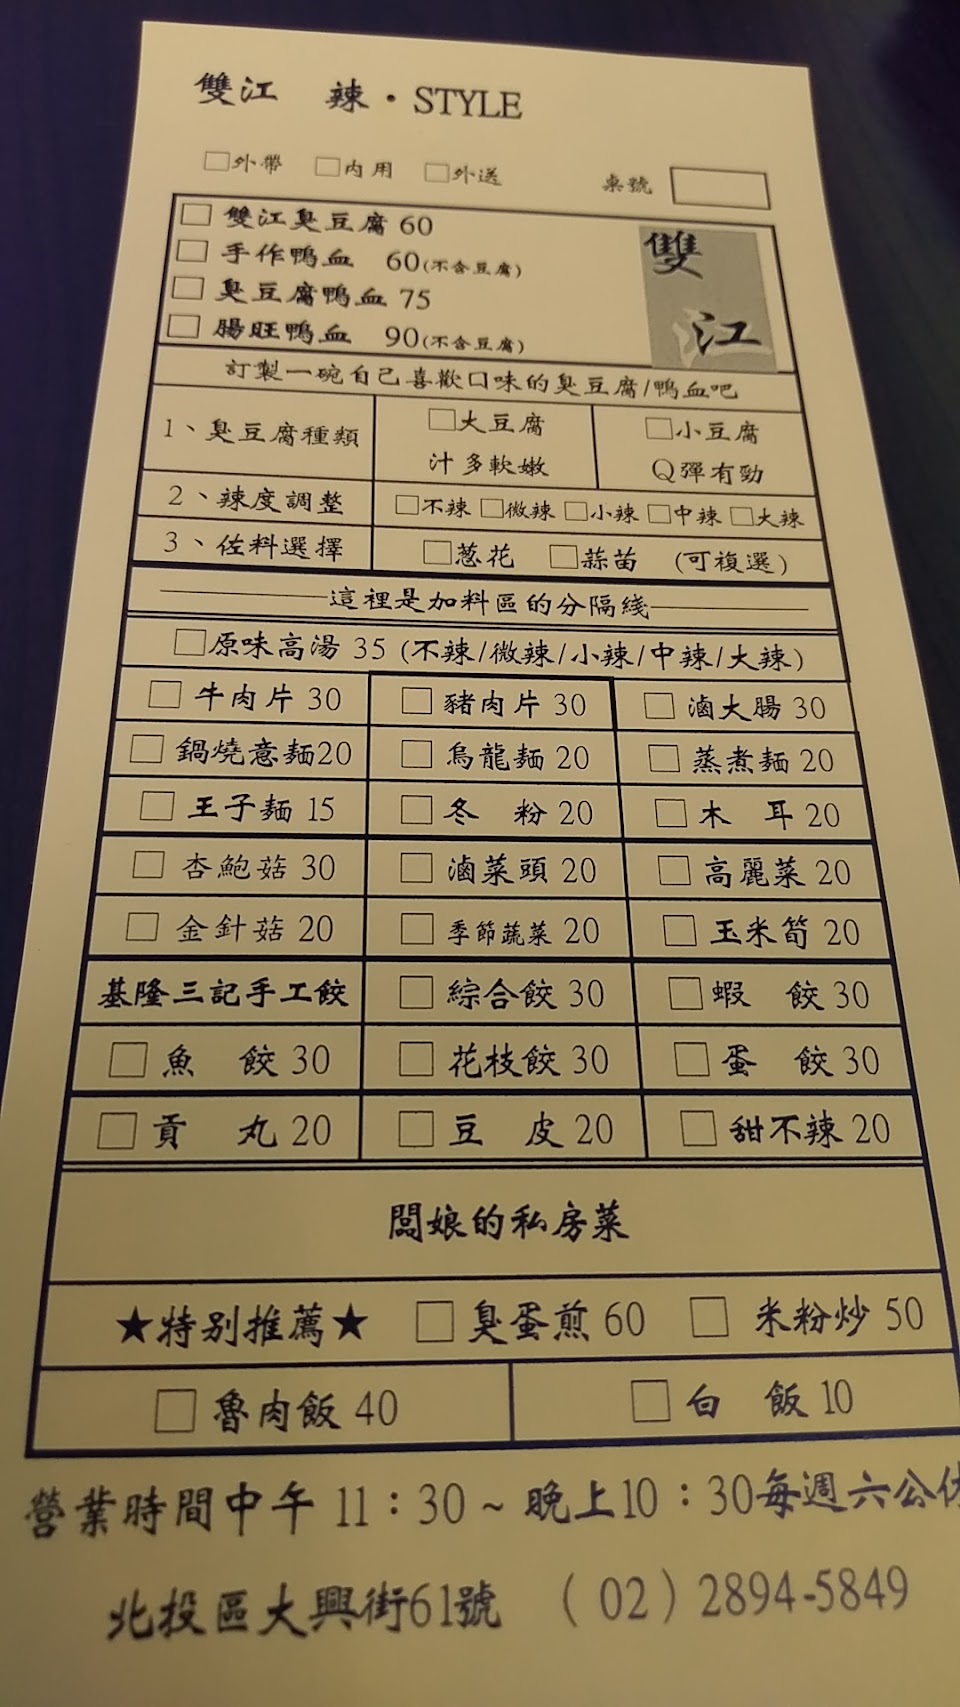 雙江 辣·STYLE
□外帶 □內用 □外送 桌號
□ 雙江臭豆腐 60
□ 手作鴨血 60(不含豆腐)
□ 臭豆腐鴨血 75
□ 腸旺鴨血 90(不含豆腐)
雙江
訂製一碗自己喜歡口味的臭豆腐/鴨血吧
1、臭豆腐種類 □大豆腐 □小豆腐
汁多軟嫩 Q彈有勁
2、辣度調整 □不辣 □微辣 □小辣 □中辣 □大辣
3、佐料選擇 □葱花 □蒜苗 (可複選)
這裡是加料區的分隔綫
□原味高湯 35 (不辣/微辣/小辣/中辣/大辣)
□ 牛肉片 30 □ 豬肉片 30 □ 滷大腸 30
□ 鍋燒意麵20 □ 烏龍麵 20 □ 蒸煮麵 20
□ 王子麵 15 □ 冬 粉 20 □ 木 耳 20
□ 杏鮑菇 30 □ 滷菜頭 20 □ 高麗菜 20
□ 金針菇 20 □ 季節蔬菜 20 □ 玉米筍 20
基隆三記手工餃 □ 綜合餃 30 □ 蝦 餃 30
□ 魚 餃 30 □ 花枝餃 30 □ 蛋 餃 30
□ 貢 丸 20 □ 豆 皮 20 □ 甜不辣 20
闆娘的私房菜
★特別推薦★ □ 臭蛋煎 60 □ 米粉炒 50
□ 魯肉飯 40 □ 白 飯 10
營業時間中午 11：30 ~ 晚上10：30每週六公休
北投區大興街61號 (02) 2894-5849